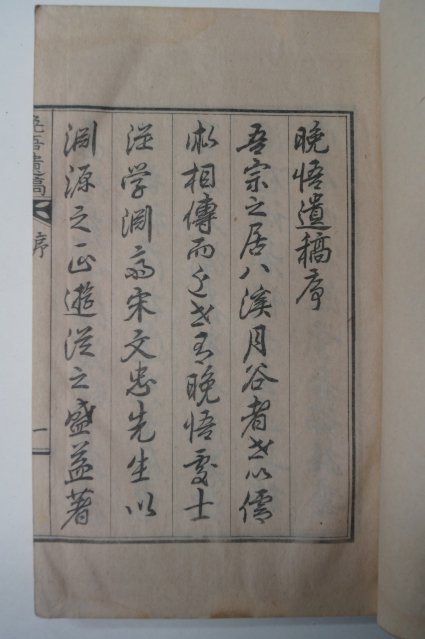 晚悟遺稿序
吾宗之居八溪月谷者世以儒
術相傳而近世有晚悟處士
從学淵齋宋文忠先生以
淵源之正遊從之盛益著
晚吾遺稿 序 一